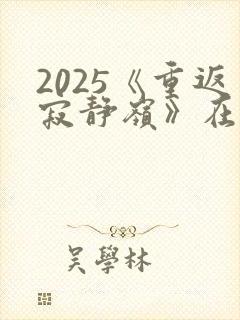 2025《重返
寂静嶺》在
吴學林